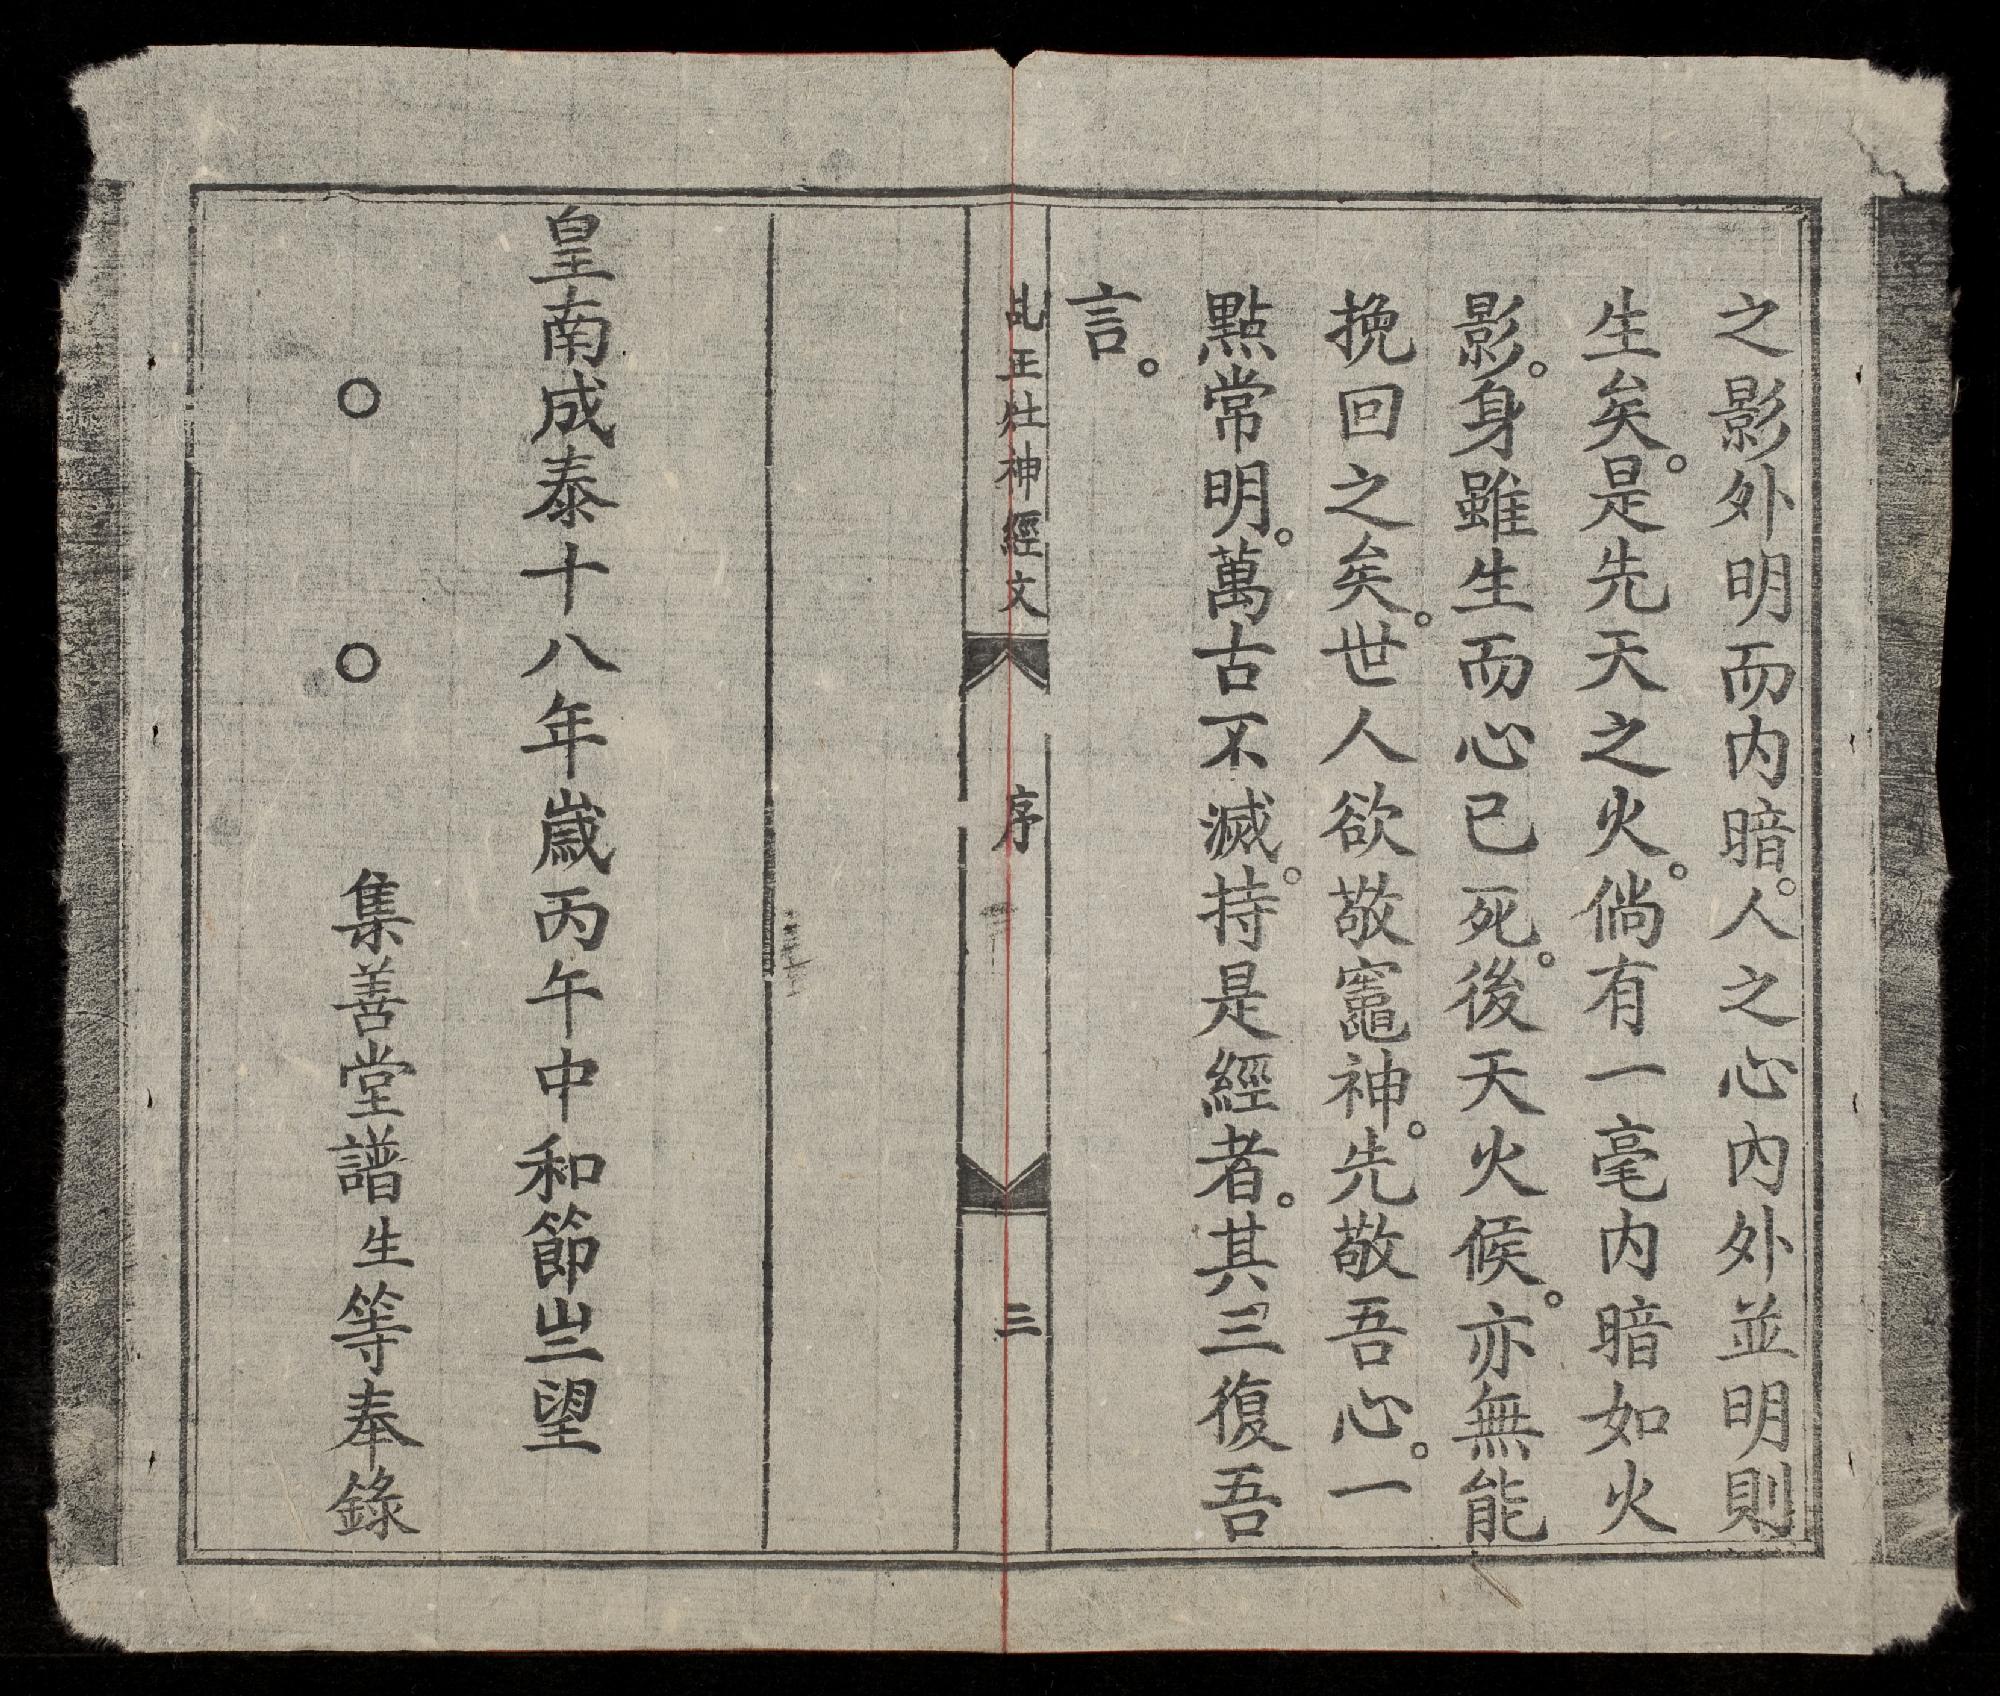 之影外明而内暗。人之心内外並明則
生矣。是先天之火。倘有一毫内暗如火
影。身雖生而心已死。後天火候。亦無能
挽回之矣。世人欲敬竈神。先敬吾心。一
點常明。萬古不滅。持是經者。其三復吾
言。
乩王灶神經文 序 三
皇南成泰十八年歲丙午中和節㞢望
○ ○ 集善堂譜生等奉錄